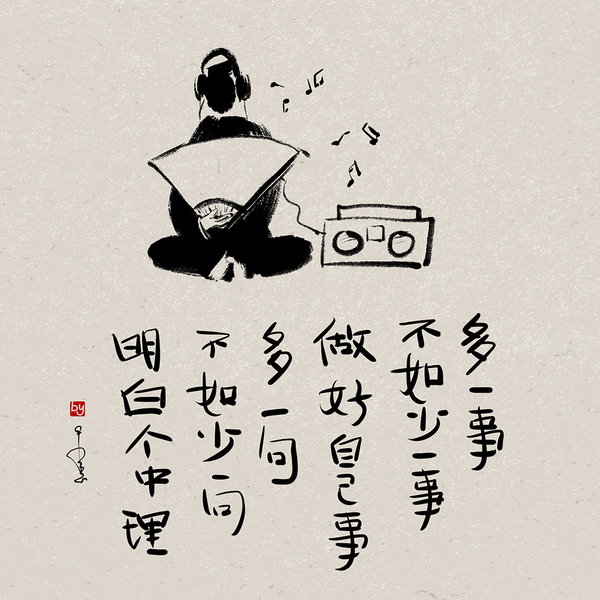 多一事
不如少一事
做好自己事
多一句
不如少一句
明白个中理
by